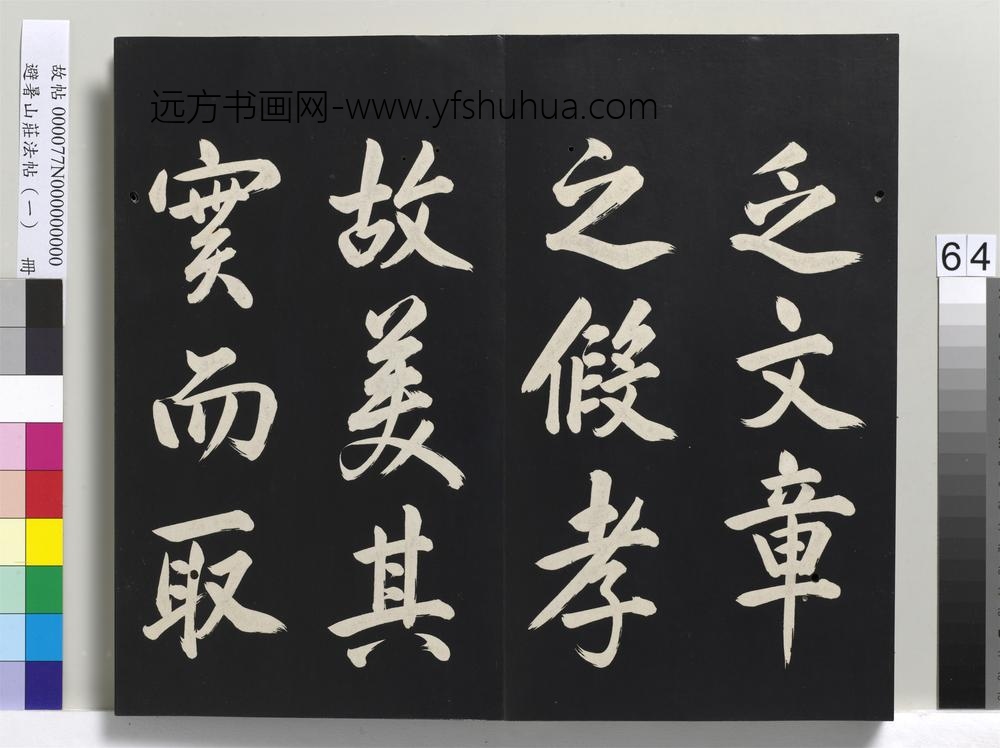 远方书画网-www.yfshuhua.com
乏文章
之假孝
故美其
實而取
故帖 000077N000000000
避暑山莊法帖（一） 冊
64